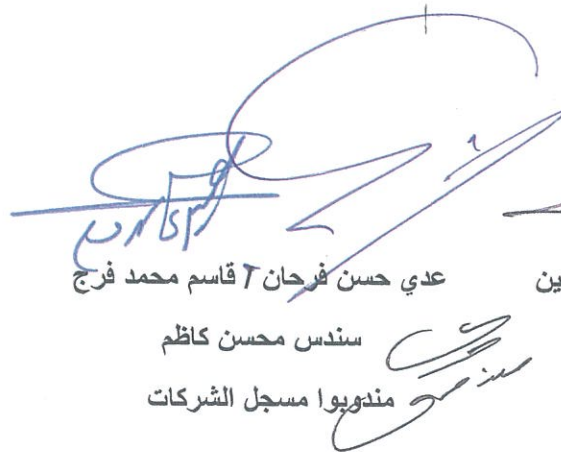 ين عدي حسن فرحان قاسم محمد فرج
سندس محسن كاظم
مندوبوا مسجل الشركات